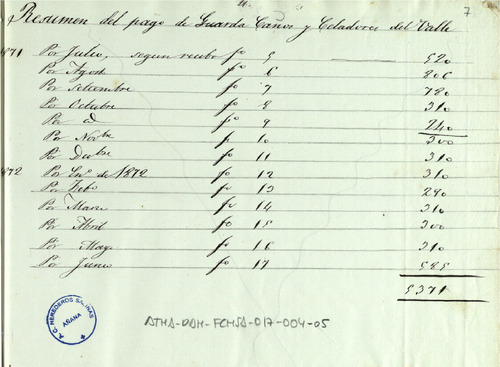 7
Resumen del pago de Guarda Caños y Celadores del Valle
1871 Por Julio, segun recibo fº 5 520
Por Agosto fº 6 806
Por Setiembre fº 7 780
Por Octubre fº 8 310
Por id fº 9 240
Por Novbre fº 10 300
Por Dicbre fº 11 310
1872 Por Enº de 1872 fº 12 310
Por Febº fº 13 290
Por Marzo fº 14 310
Por Abril fº 15 300
Por Mayo fº 16 310
Por Junio fº 17 585
5371
A.C. HEREDEROS SALINAS
ARANA
ATHA-DAH-FCHSA-017-004-05